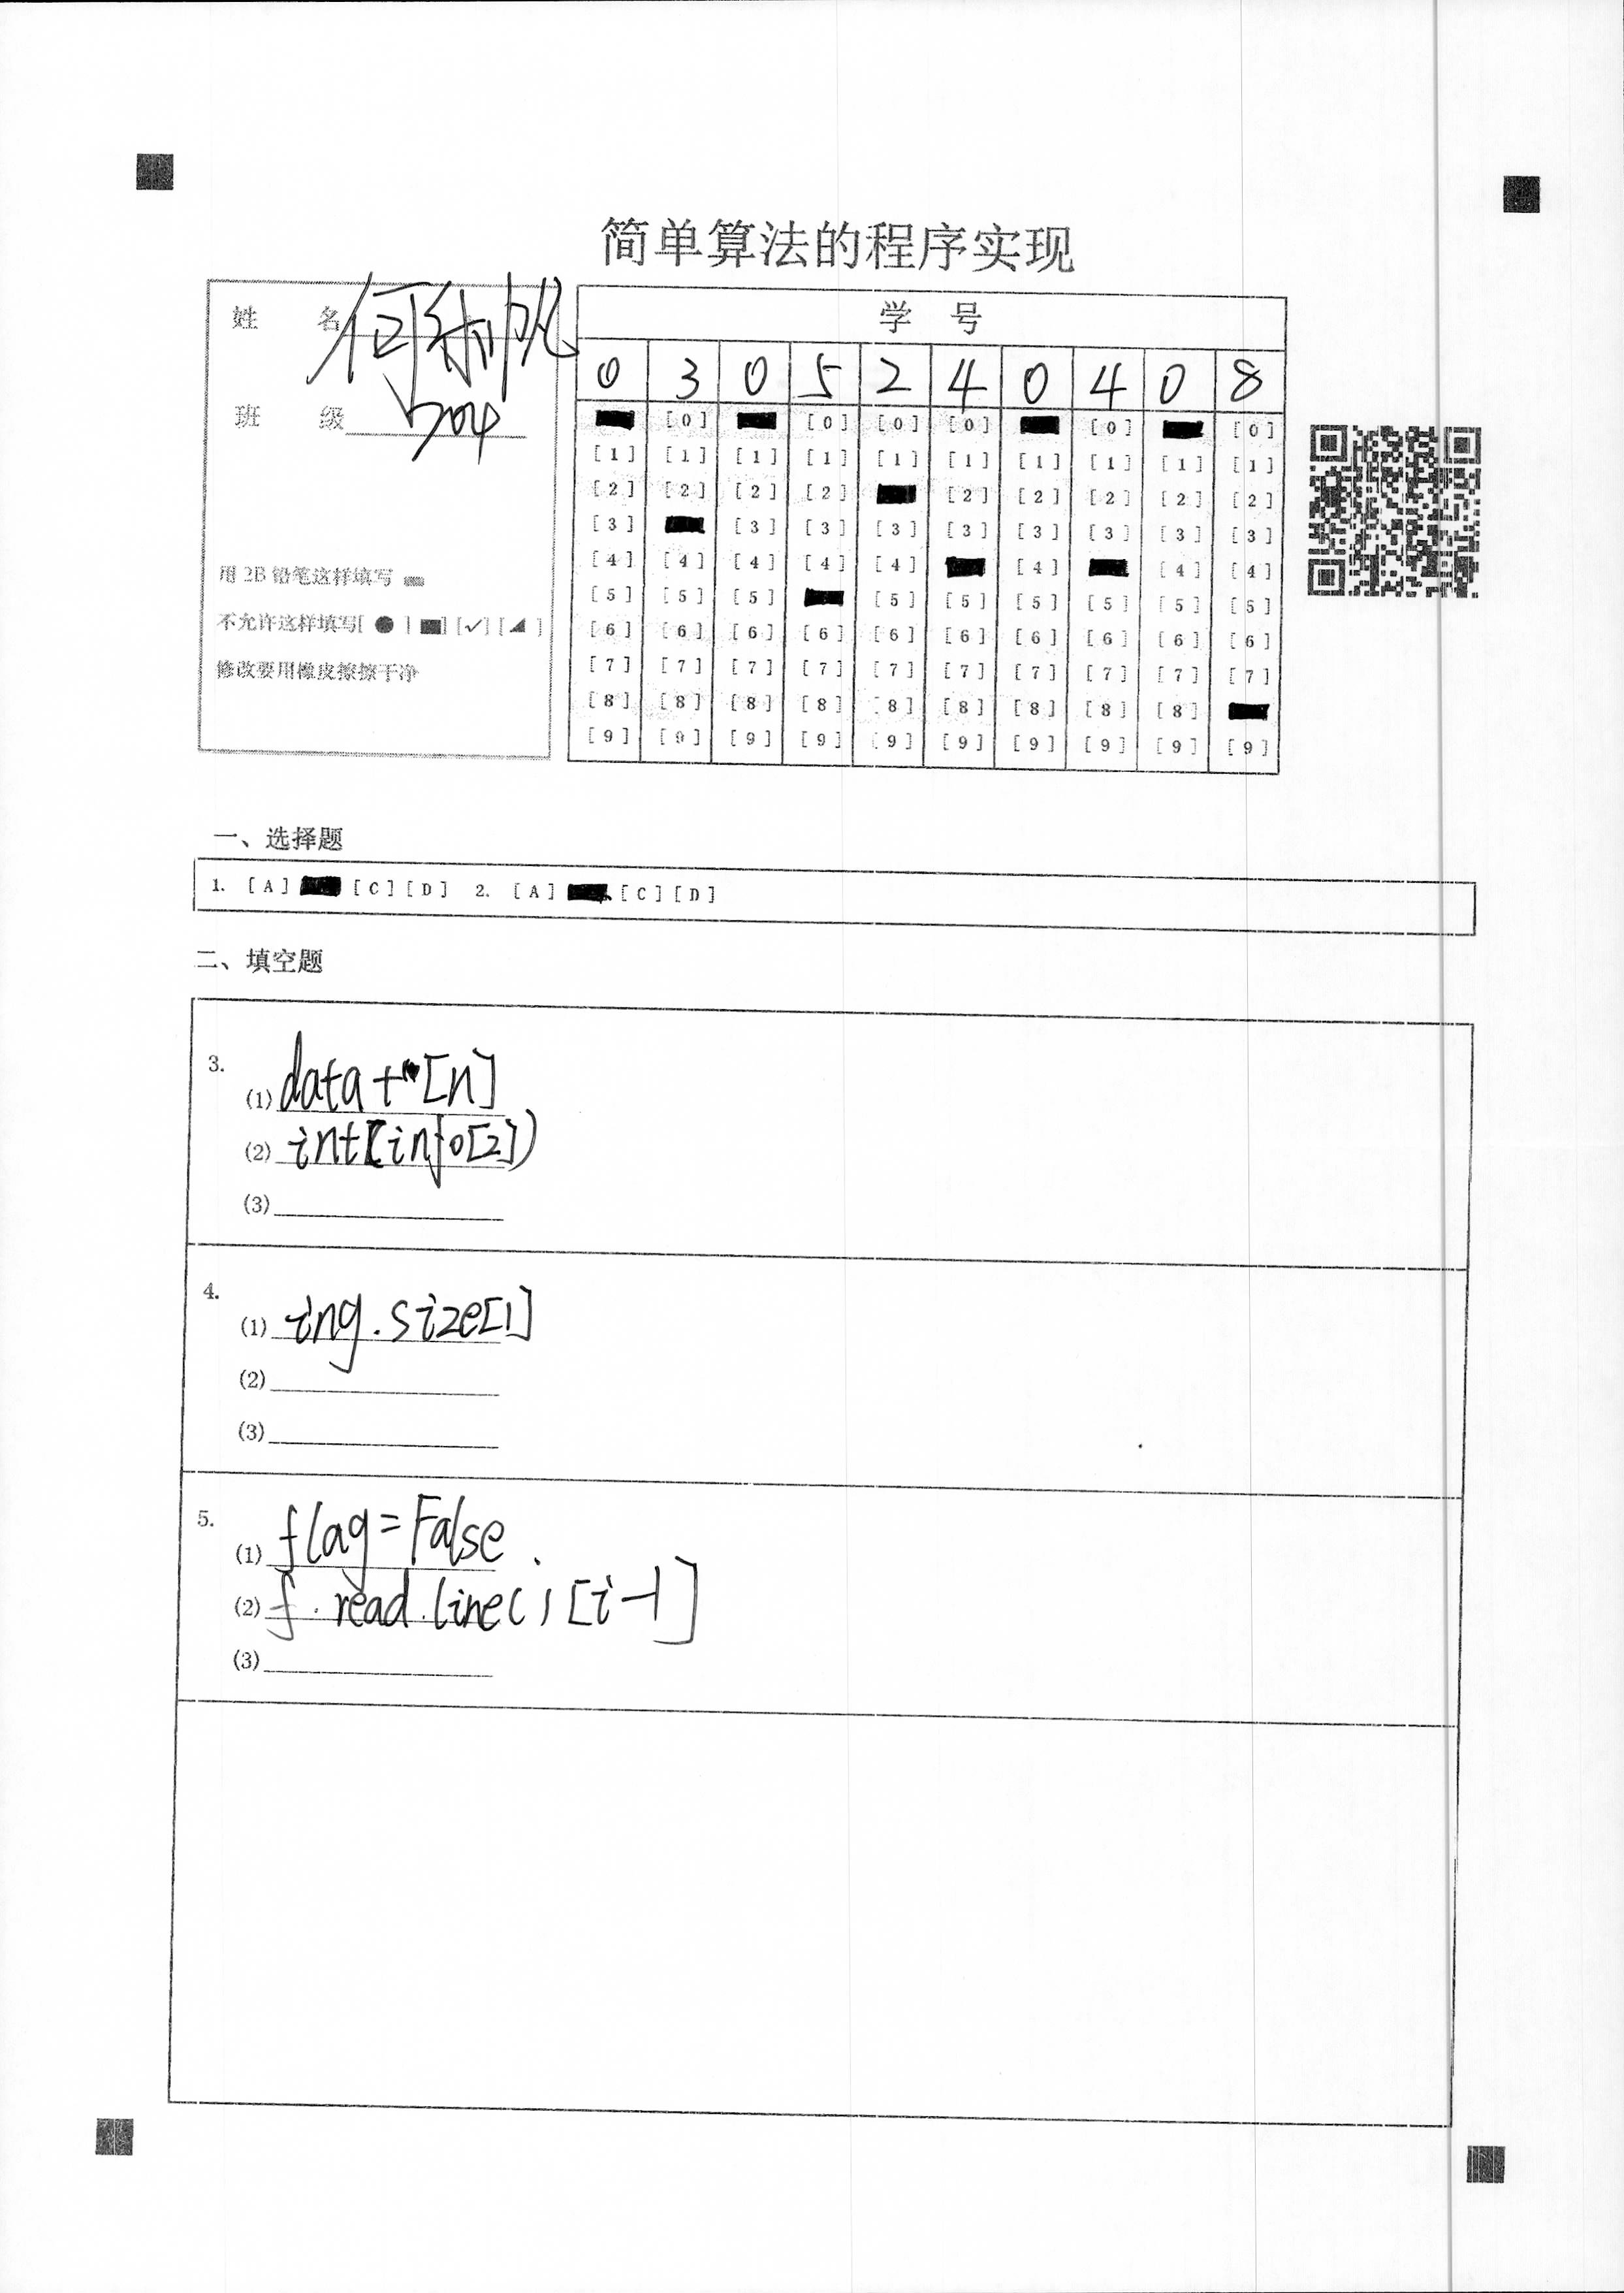 简单算法的程序实现
姓 名 何 帆
班 级 204
用 2B 铅笔这样填写
不允许这样填写[ ● ] [■] [✓] [◢ ]
修改要用橡皮擦擦干净
学 号
0 3 0 5 2 4 0 4 0 8
[0] [0] [0] [0] [0] [0]
[1] [1] [1] [1] [1] [1] [1] [1] [1] [1]
[2] [2] [2] [2] [2] [2] [2] [2] [2]
[3] [3] [3] [3] [3] [3] [3] [3] [3]
[4] [4] [4] [4] [4] [4] [4] [4]
[5] [5] [5] [5] [5] [5] [5] [5] [5]
[6] [6] [6] [6] [6] [6] [6] [6] [6] [6]
[7] [7] [7] [7] [7] [7] [7] [7] [7] [7]
[8] [8] [8] [8] [8] [8] [8] [8] [8]
[9] [9] [9] [9] [9] [9] [9] [9] [9] [9]
一、选择题
1. [A] [C] [D] 2. [A] [C] [D]
二、填空题
3.
(1) data + [n]
(2) int(info[2])
(3)
4.
(1) ing.size[1]
(2)
(3)
5.
(1) flag=False
(2) f.read.line()[i-1]
(3)